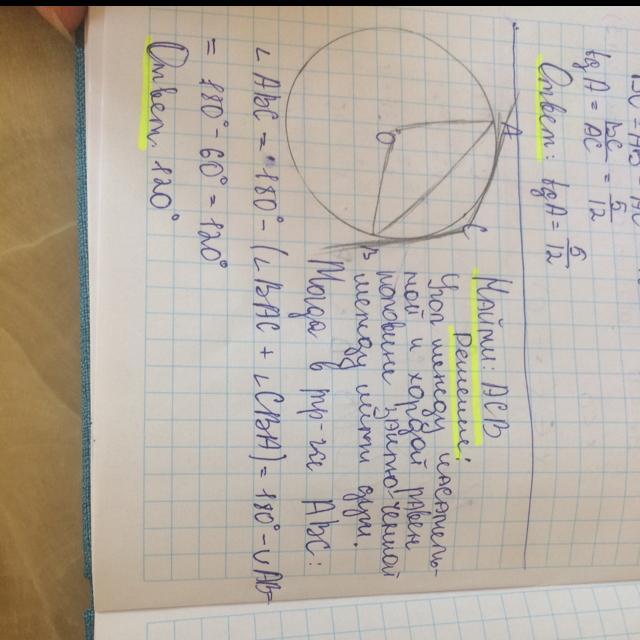 tg A = BC/AC = 5/12
Ответ: tg A = 5/12
A
O
C
B
Найти: ACB
Решение:
Угол между касатель-
ной и хордой равен
половине заключенной
между ними дуги.
Тогда в тр-ке АВС:
∠ABC = 180° - (∠BAC + ∠CBA) = 180° - ∪AB
= 180° - 60° = 120°
Ответ. 120°